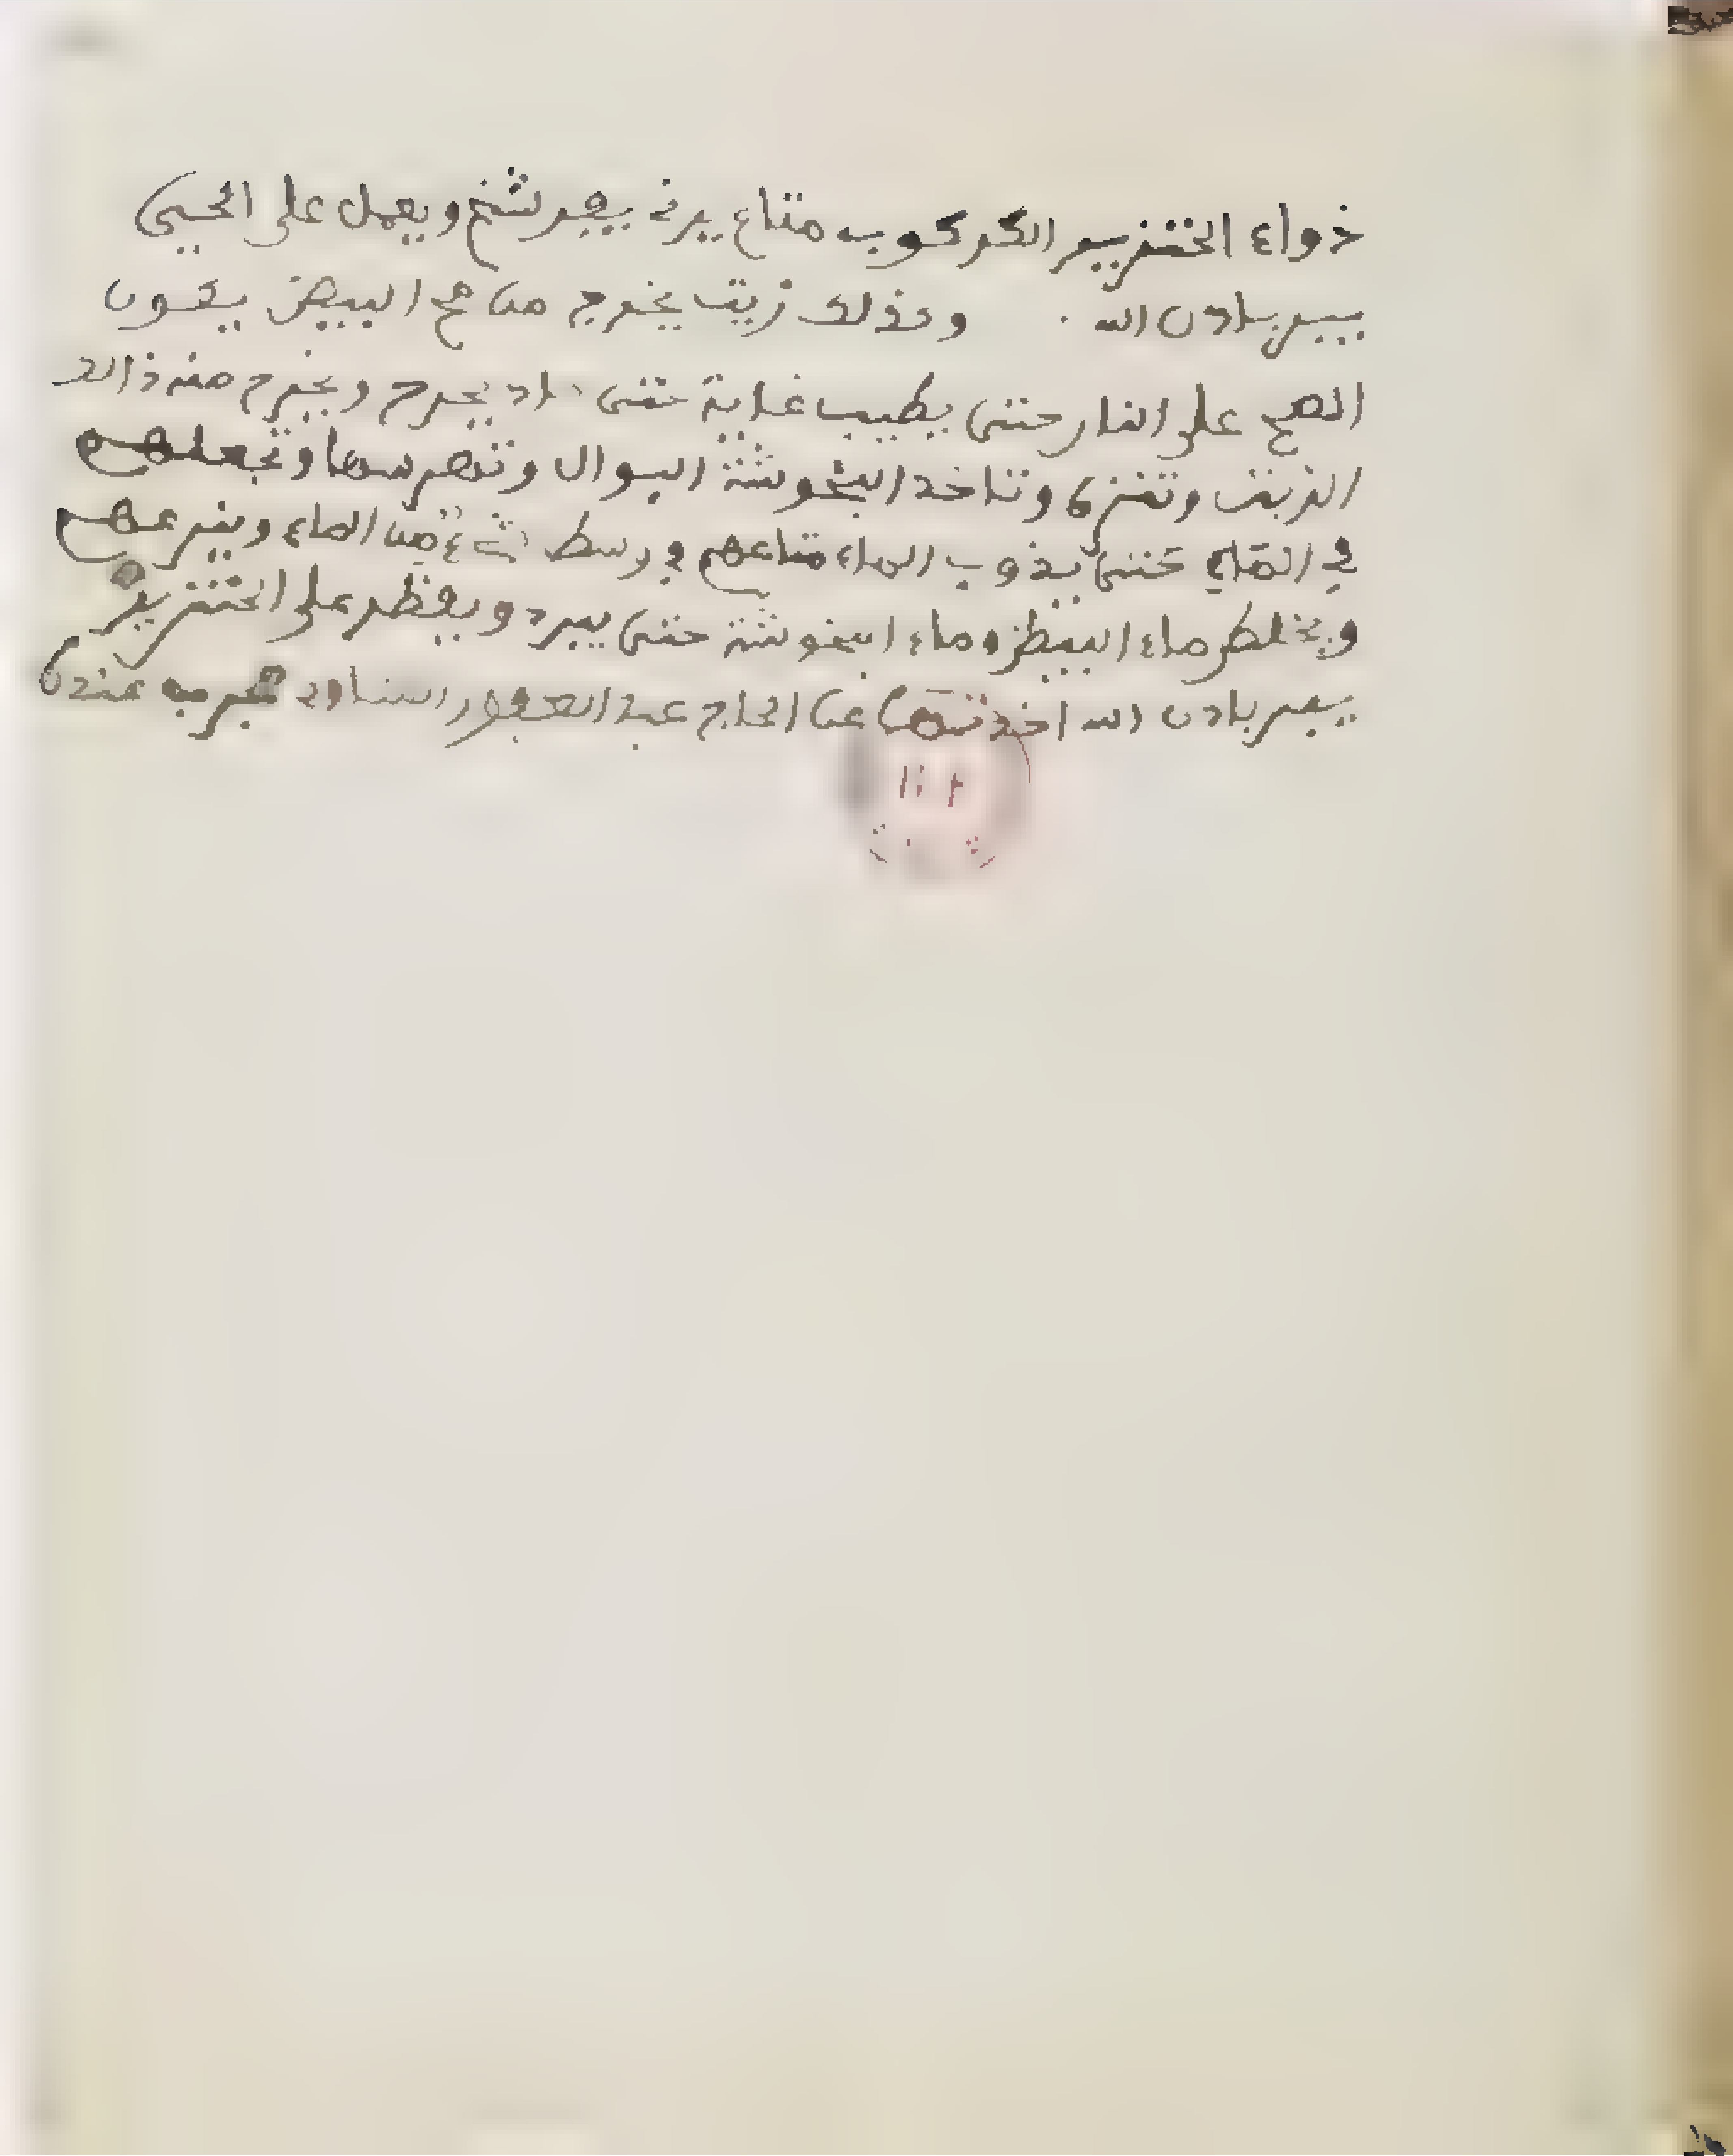 ذواء الخنزير الكركوب متاع يرنى يفرشخ ويعمل على الحبى
يبير بادن الله . وكذلك زيت يخرج من مح البيض يكون
المح على النار حتى يطيب غاية حتى يحرح ويخرج منه ذالك
الزيت وتنزه وتاخد الببخوشة البوال وتهرسها وتجعلهم
في المقلي حتى يذوب الماء متاعهم في وسط من الماء وينزعهم
ويخلط ماء البيظ وماء الببخوشة حتى يبرد ويقطر على الخنزير
يبير بادن الله اخدتها عن الحاج عبد الغفور مجربه عنده